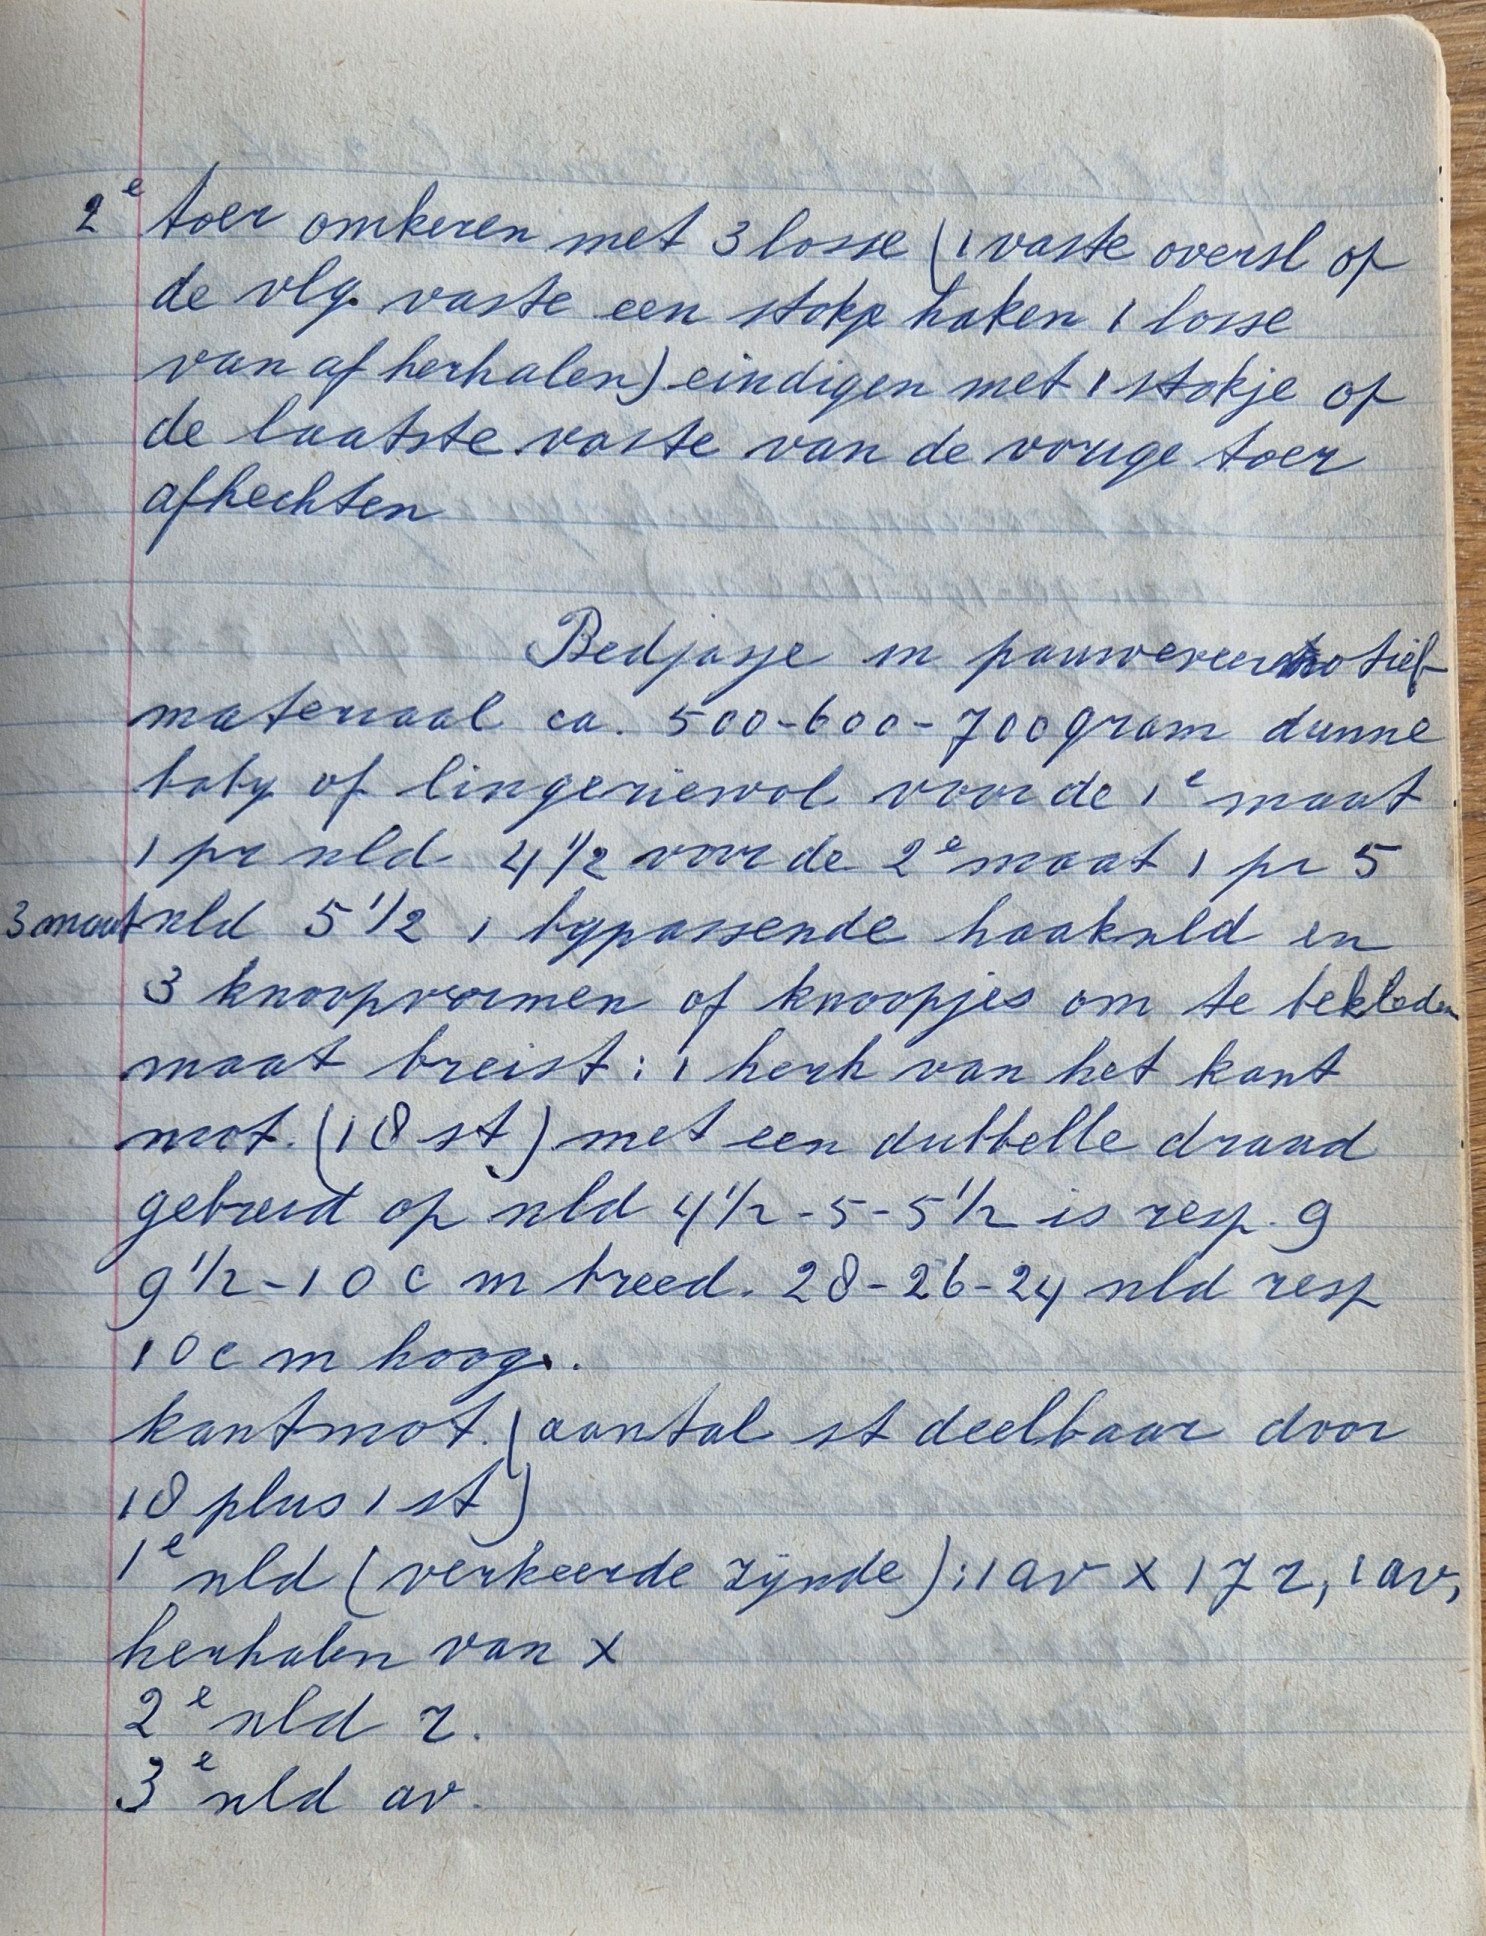 2e toer omkeren met 3 losse (1 vaste oversl op
de vlg. vaste een stokje haken 1 losse
van af herhalen) eindigen met 1 stokje op
de laatste vaste van de vorige toer
afhechten
Bedjasje in pauweveermotief
materiaal ca. 500-600-700 gram dunne
baby of lingeriewol voor de 1e maat
1 pr nld 4 1/2 voor de 2e maat 1 pr 5
3 maat nld 5 1/2 1 bypassende haaknld en
3 knoopvormen of knoopjes om te bekleden
maat breist: 1 herh van het kant
mot. (18 st) met een dubbelle draad
gebreid op nld 4 1/2 - 5 - 5 1/2 is resp. 9
9 1/2 - 10 cm breed. 28-26-24 nld resp
10 cm hoog.
kantmot. (aantal st deelbaar door
18 plus 1 st)
1e nld (verkeerde zijnde): 1 av x 17 r, 1 av,
herhalen van x
2e nld r.
3e nld av.